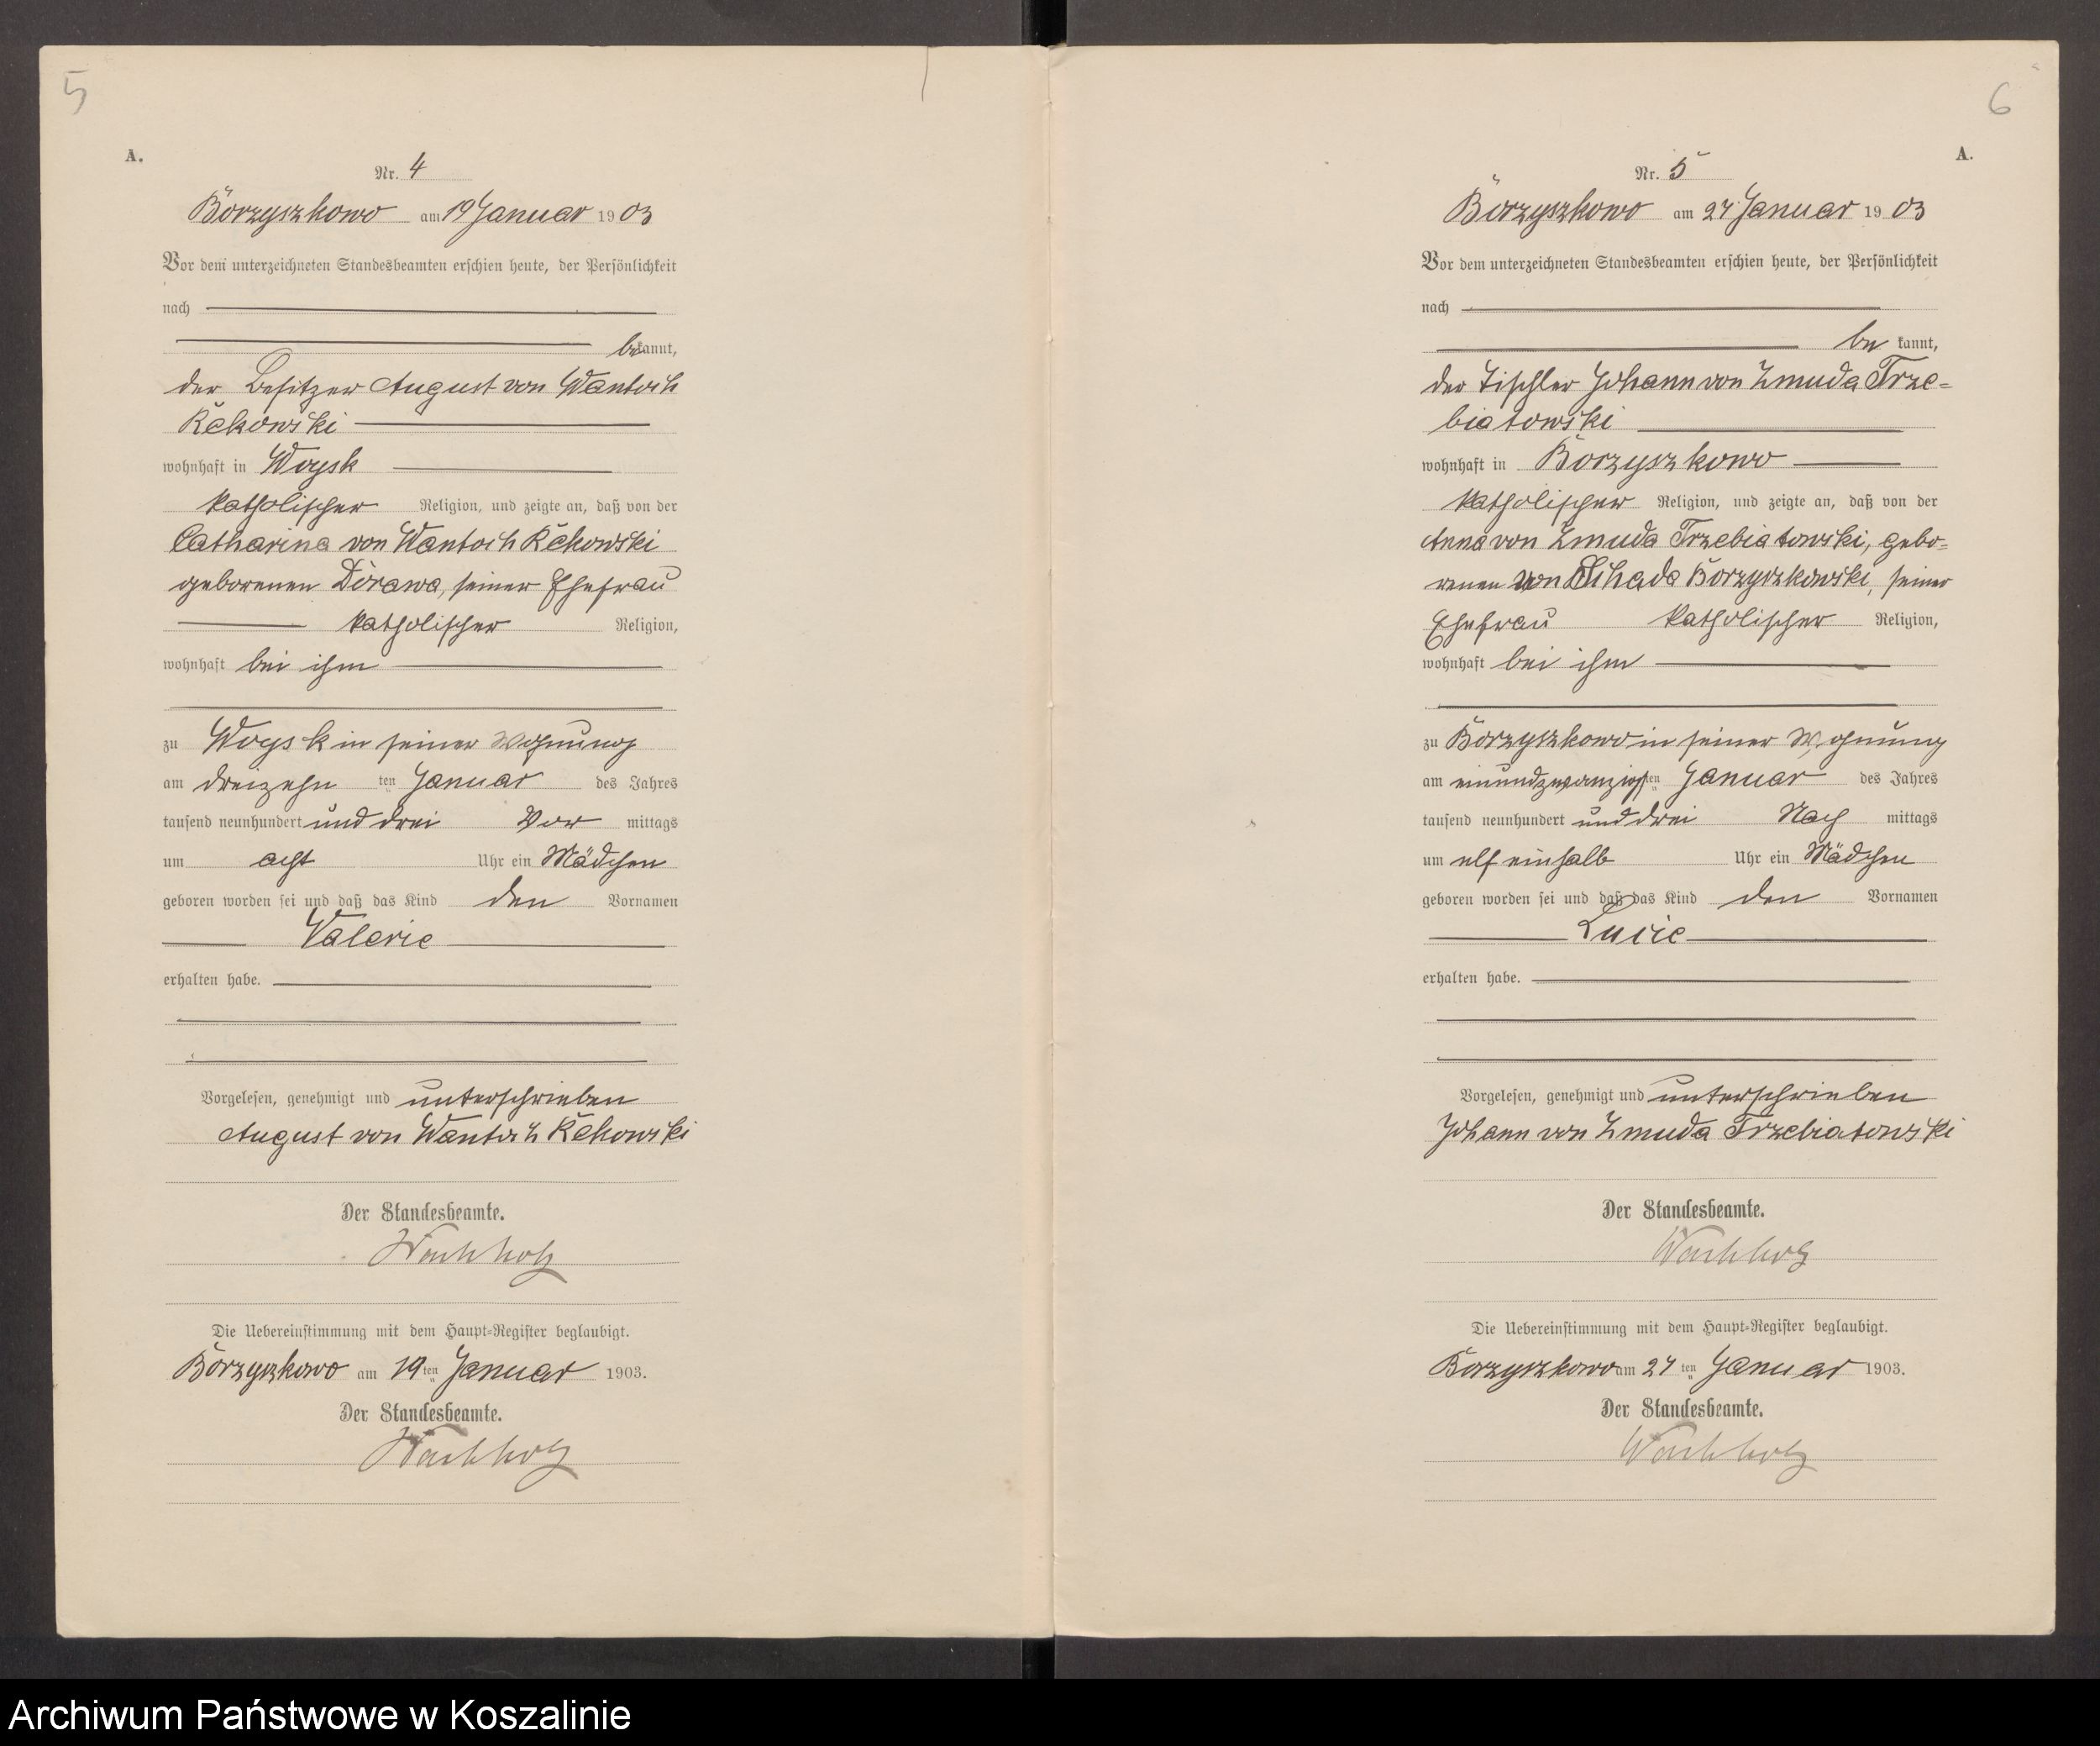 5
A.
Nr. 4
Borzyszkowo am 19 Januar 1903
Vor dem unterzeichneten Standesbeamten erschien heute, der Persönlichkeit
nach
bekannt,
der Besitzer August von Wantoch
Rekowski
wohnhaft in Woysk
katholischer Religion, und zeigte an, daß von der
Catharina von Wantoch Rekowski
geborenen Dorawa, seiner Ehefrau
katholischer Religion,
wohnhaft bei ihm
zu Woysk in seiner Wohnung
am dreizehn ten Januar des Jahres
tausend neunhundert und drei Vor mittags
um acht Uhr ein Mädchen
geboren worden sei und daß das Kind den Vornamen
Valerie
erhalten habe.
Vorgelesen, genehmigt und unterschrieben
August von Wantoch Rekowski
Der Standesbeamte.
Wachholz
Die Uebereinstimmung mit dem Haupt-Register beglaubigt.
Borzyszkowo am 19ten Januar 1903.
Der Standesbeamte.
Wachholz
6
A.
Nr. 5
Borzyszkowo am 24 Januar 1903
Vor dem unterzeichneten Standesbeamten erschien heute, der Persönlichkeit
nach
bekannt,
der Tischler Johann von Zmuda Trze-
biatowski
wohnhaft in Borzyszkowo
katholischer Religion, und zeigte an, daß von der
Anna von Zmuda Trzebiatowski, gebo-
renen von Borzyszkowski, seiner
Ehefrau katholischer Religion,
wohnhaft bei ihm
zu Borzyszkowo in seiner Wohnung
am einundzwanzigsten Januar des Jahres
tausend neunhundert und drei Nach mittags
um elf einhalb Uhr ein Mädchen
geboren worden sei und daß das Kind den Vornamen
Lucie
erhalten habe.
Vorgelesen, genehmigt und unterschrieben
Johann von Zmuda Trzebiatowski
Der Standesbeamte.
Wachholz
Die Uebereinstimmung mit dem Haupt-Register beglaubigt.
Borzyszkowo am 24ten Januar 1903.
Der Standesbeamte.
Wachholz
Archiwum Państwowe w Koszalinie